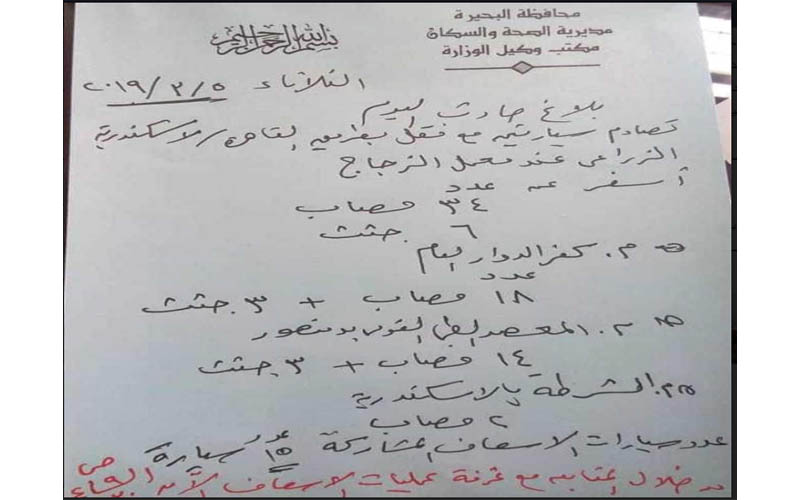 محافظة البحيرة
مديرية الصحة والسكان
مكتب وكيل الوزارة
بسم الله الرحمن الرحيم
الثلاثاء ٢٠١٩/٣/٥
بلاغ حادث اليوم
تصادم سيارتين مع بطريق القاهرة / الاسكندرية
الزراعى عند معمل الزجاج
أسفر عن عدد
٣٤ مصاب
٦ جثث
م. كفر الدوار العام
عدد
١٨ مصاب + ٣ جثث
م. المعهد الطبى القومى بدمنهور
١٤ مصاب + ٣ جثث
م. الشرطة بالاسكندرية
٢ مصاب
عدد سيارات الاسعاف المشاركة عدد ١٥ سيارة
من خلال المتابعه مع غرفة عمليات الاسعاف